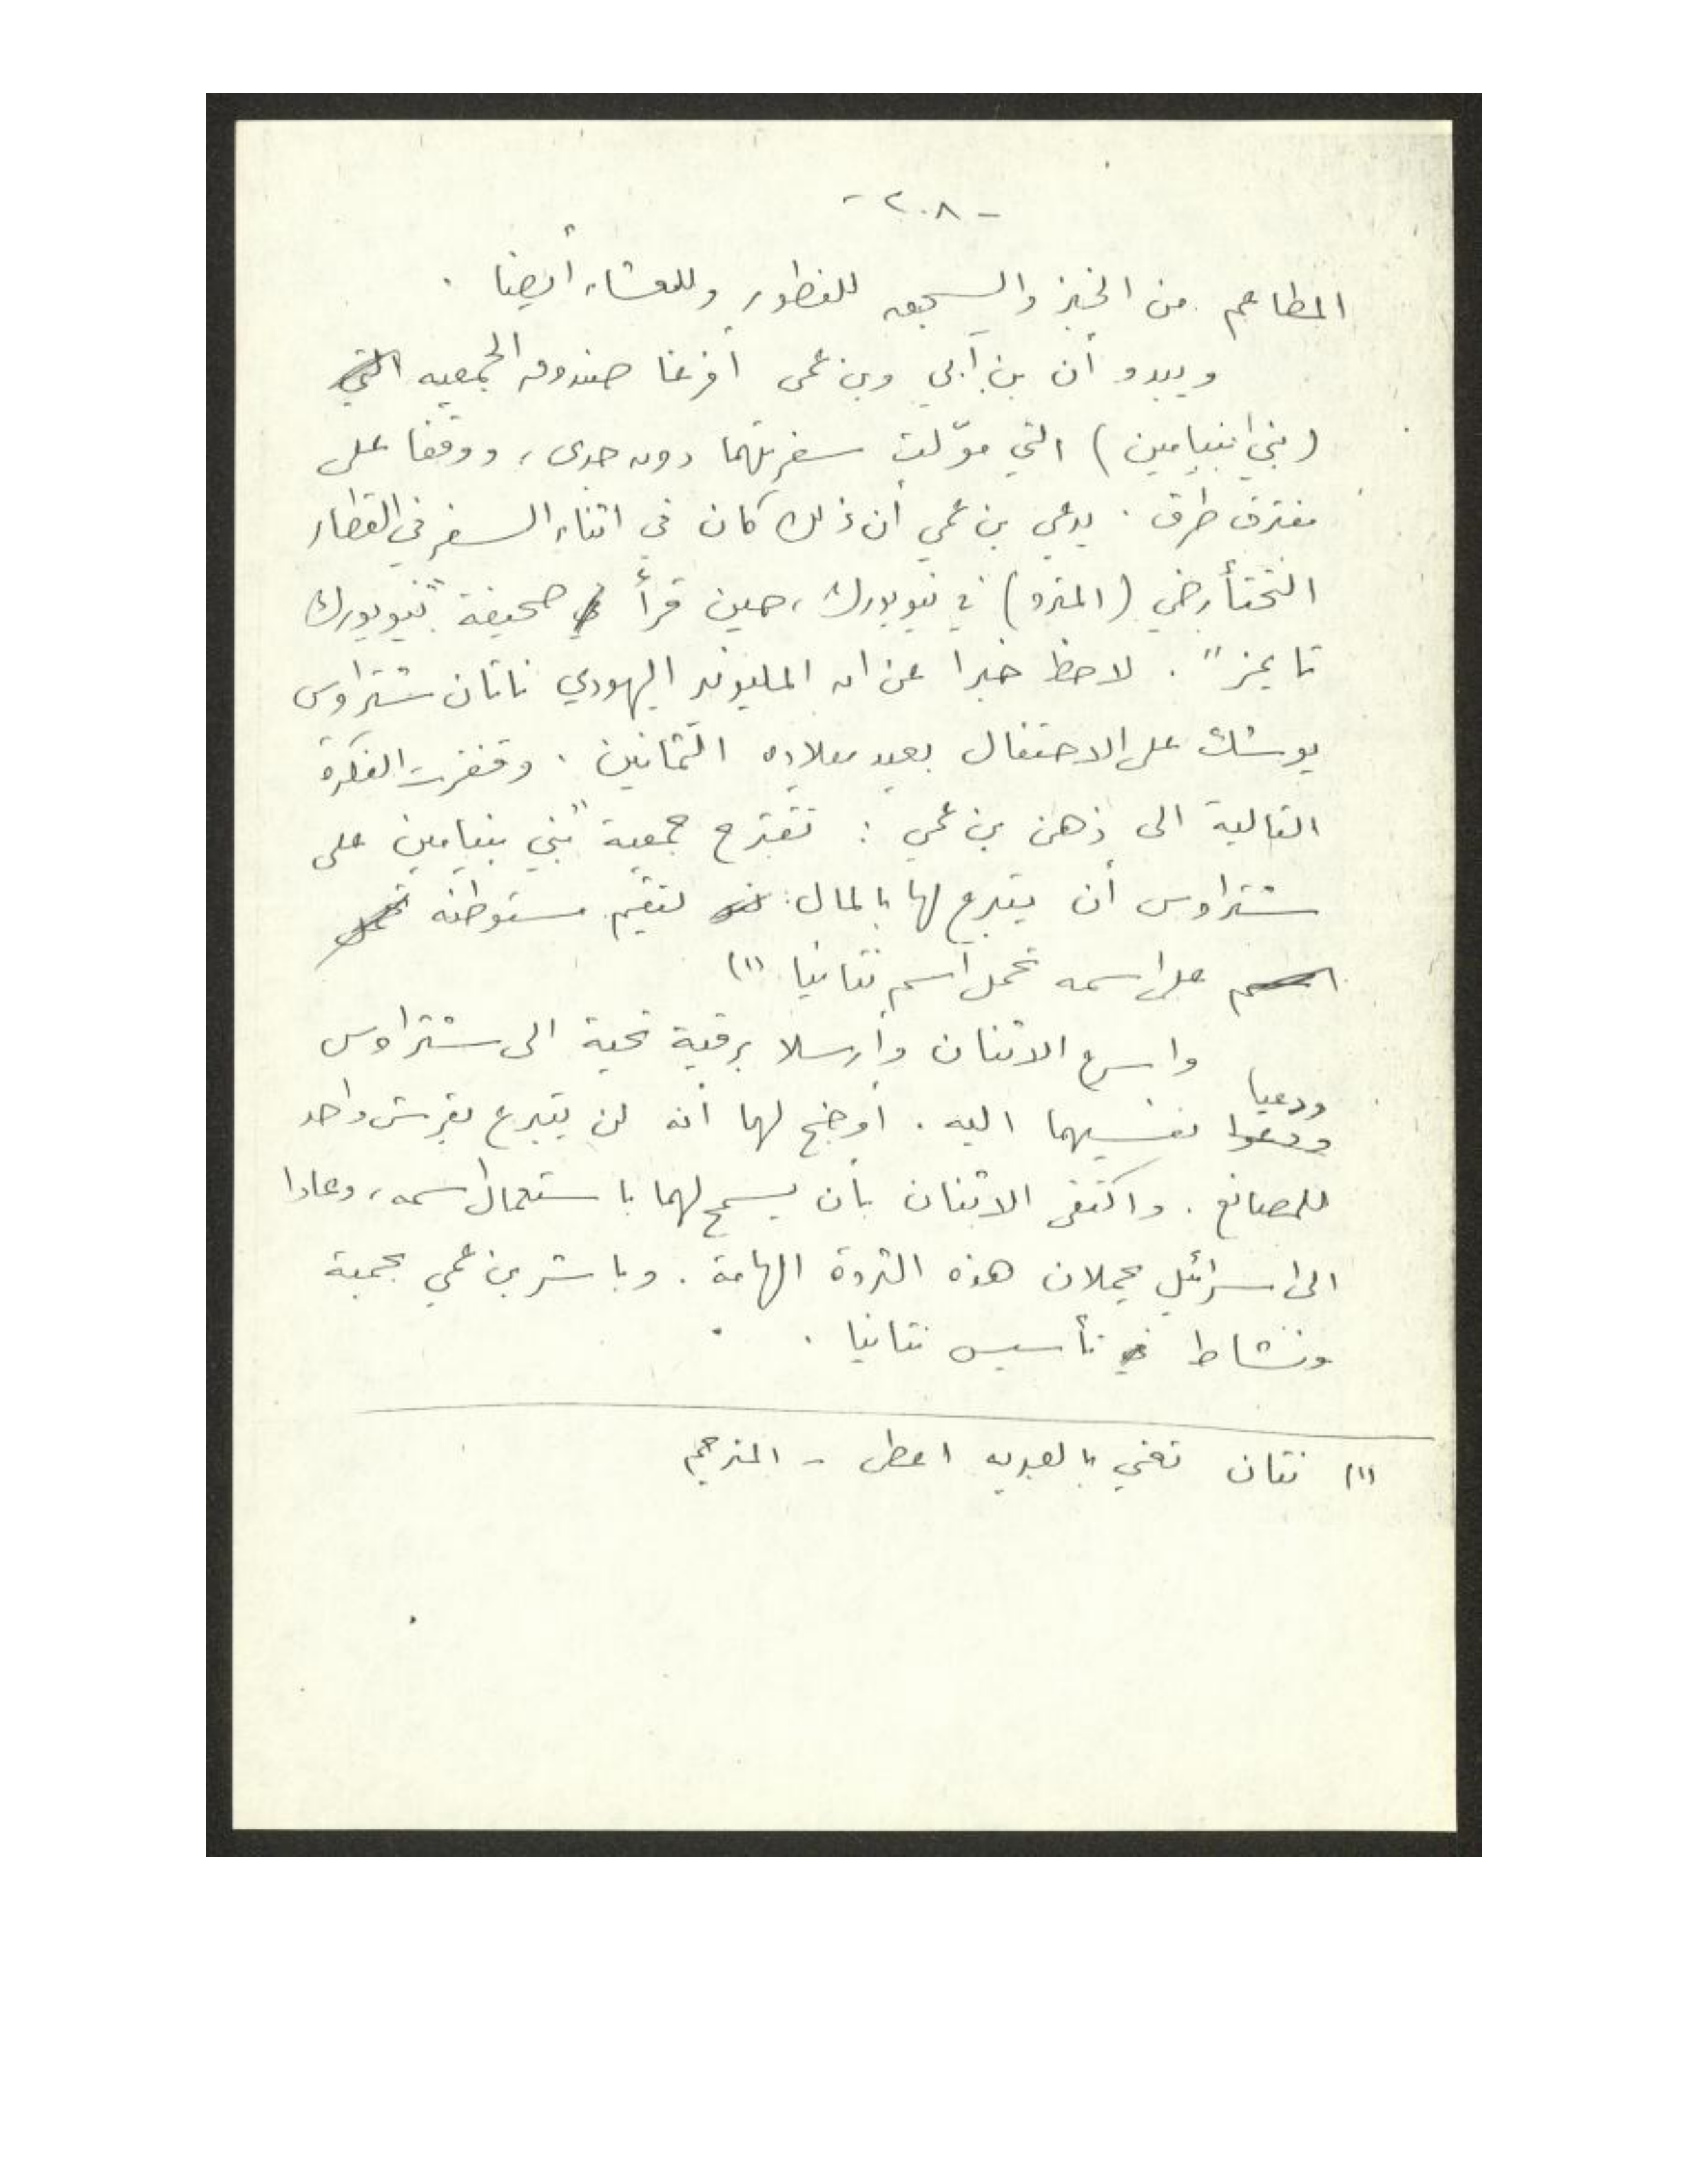 - ٢٠٨ -
المطاعم من الخبز والسجق للفطور وللعشاء أيضا .
ويبدو أن بن آبي وبن عمي أفرغا صندوق الجمعيه
(بني بنيامين) التي موّلت سفرتهما دون جدى، ووقفا على
مفترق طرق . يدعي بن عمي أن ذلك كان في اثناء السفر في القطار
التحتأرضي (المترو) في نيويورك، حين قرأ صحيفة "نيويورك
تايمز" . لاحظ خبرا عن ان المليونير اليهودي ناتان شتراوس
يوشك على الاحتفال بعيد ميلاده الثمانين . وقفزت الفكرة
التالية الى ذهن بن عمي : تقترح جمعية "بني بنيامين على
شتراوس أن يتبرع لها بالمال لتقيم مستوطنه
على اسمه تحمل اسم نتانيا (١)
واسرع الاثنان وأرسلا برقية تحية الى شتراوس
ودعيا نفسيهما اليه . أوضح لهما أنه لن يتبرع بقرش واحد
للمصانع . واكتفى الاثنان بأن يسمح لهما باستعمال اسمه، وعادا
الى اسرائيل يحملان هذه الثروة الهامة . وباشر بن عمي بحمية
ونشاط في تأسيس نتانيا .
(١) نتان تعني بالعبريه اعطى - المترجم